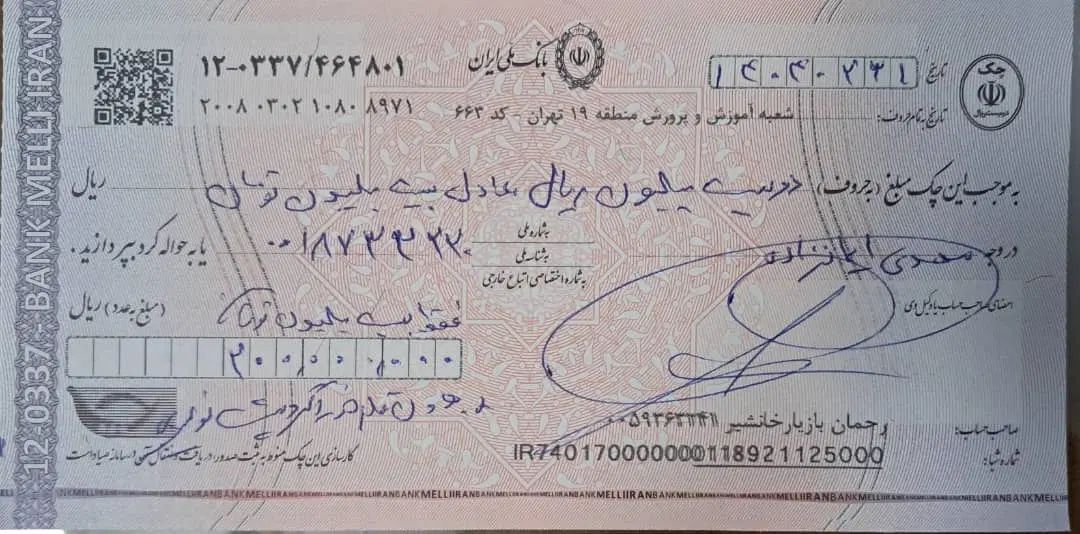 BANK MELLI IRAN
12-0337
بانک ملی ایران
۱۲-۰۳۳۷/۴۶۴۸۰۱
۲۰۰۸ ۰۳۰۲ ۱۰۸۰ ۸۹۷۱
چک
تاریخ ۱۴۰۴۰۳۳۱
تاریخ به تمام حروف:
شعبه آموزش و پرورش منطقه ۱۹ تهران - کد ۶۶۳
به موجب این چک مبلغ (به حروف) دویست میلیون ریال معادل بیست میلیون تومان ریال
در وجه
به شماره ملی
به شناسه ملی
به شماره اختصاصی اتباع خارجی
یا به حواله کرد بپردازید.
امضای صاحب حساب یا وکیل وی
(مبلغ به عدد) ریال
فقط بیست میلیون تومان
صاحب حساب: رحمان بازیار خانشیر
شماره شبا: IR740170000000118921125000
کارسازی این چک منوط به ثبت صدور، دریافت و انتقال آن در سامانه صیاد است
BANK MELLI IRAN